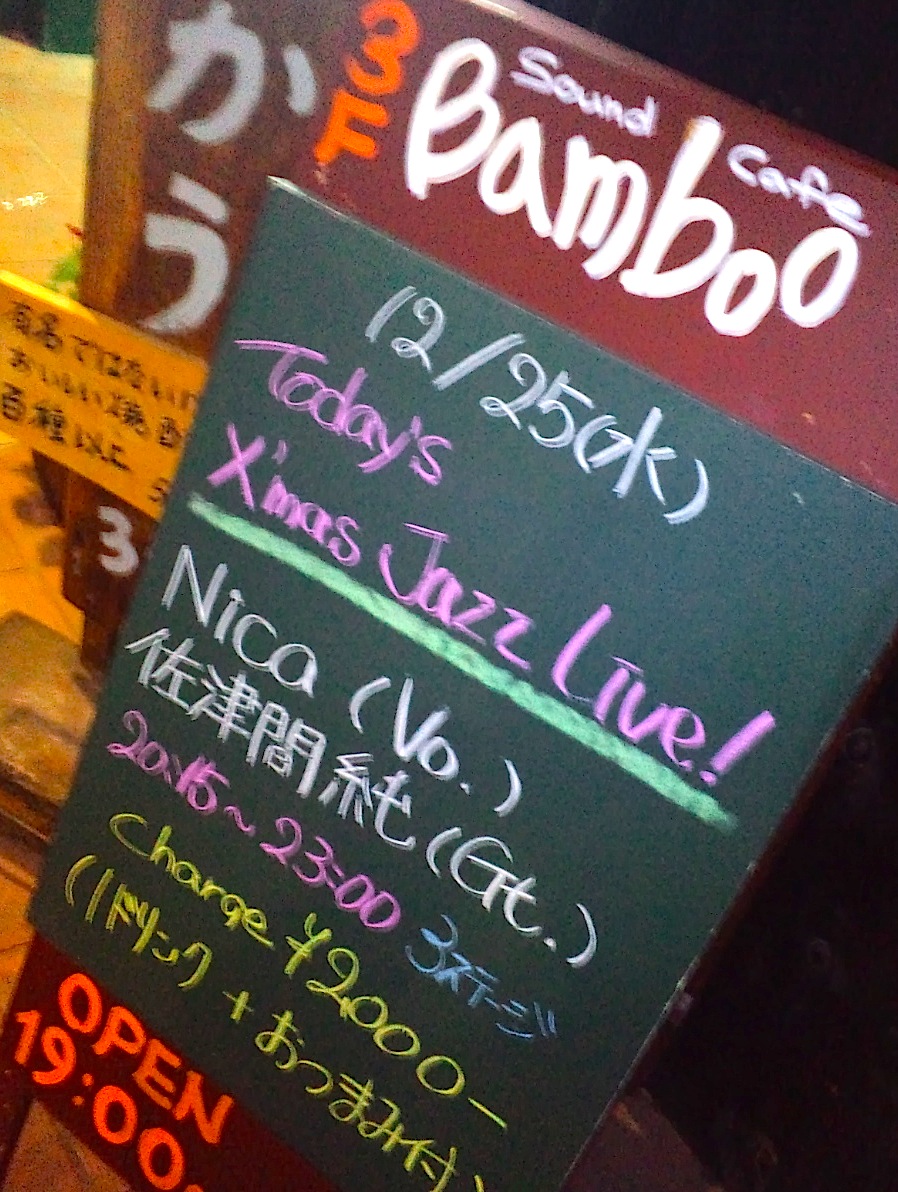 かう
3F
Sound Cafe
Bamboo
12/25(水)
Today's
X'mas Jazz Live!
Nica (Vo.)
佐津間純(Gt.)
20:15~23:00 3ステージ
Charge ¥2,000-
(1ドリンク+おつまみ付)
OPEN
19:00~
有名ではないけ
おいしい焼酎
百種以上
3